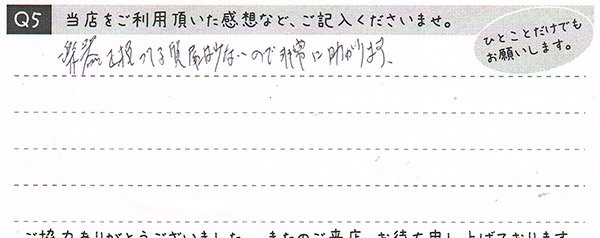 Q5 当店をご利用頂いた感想など、ご記入くださいませ。
ひとことだけでも
お願いします。
楽器を扱ってる質屋は少ないので非常に助かります、
ご協力ありがとうございました。またのご来店、お待ち申し上げております。